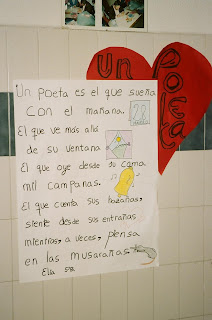 UN
POETA
Un poeta es el que sueña
con el mañana.
El que ve mas allá
de su ventana
El que oye desde su cama
mil campanas.
El que cuenta sus hazañas,
siente desde sus entrañas
mientras, a veces, piensa
en las musarañas.
Ella